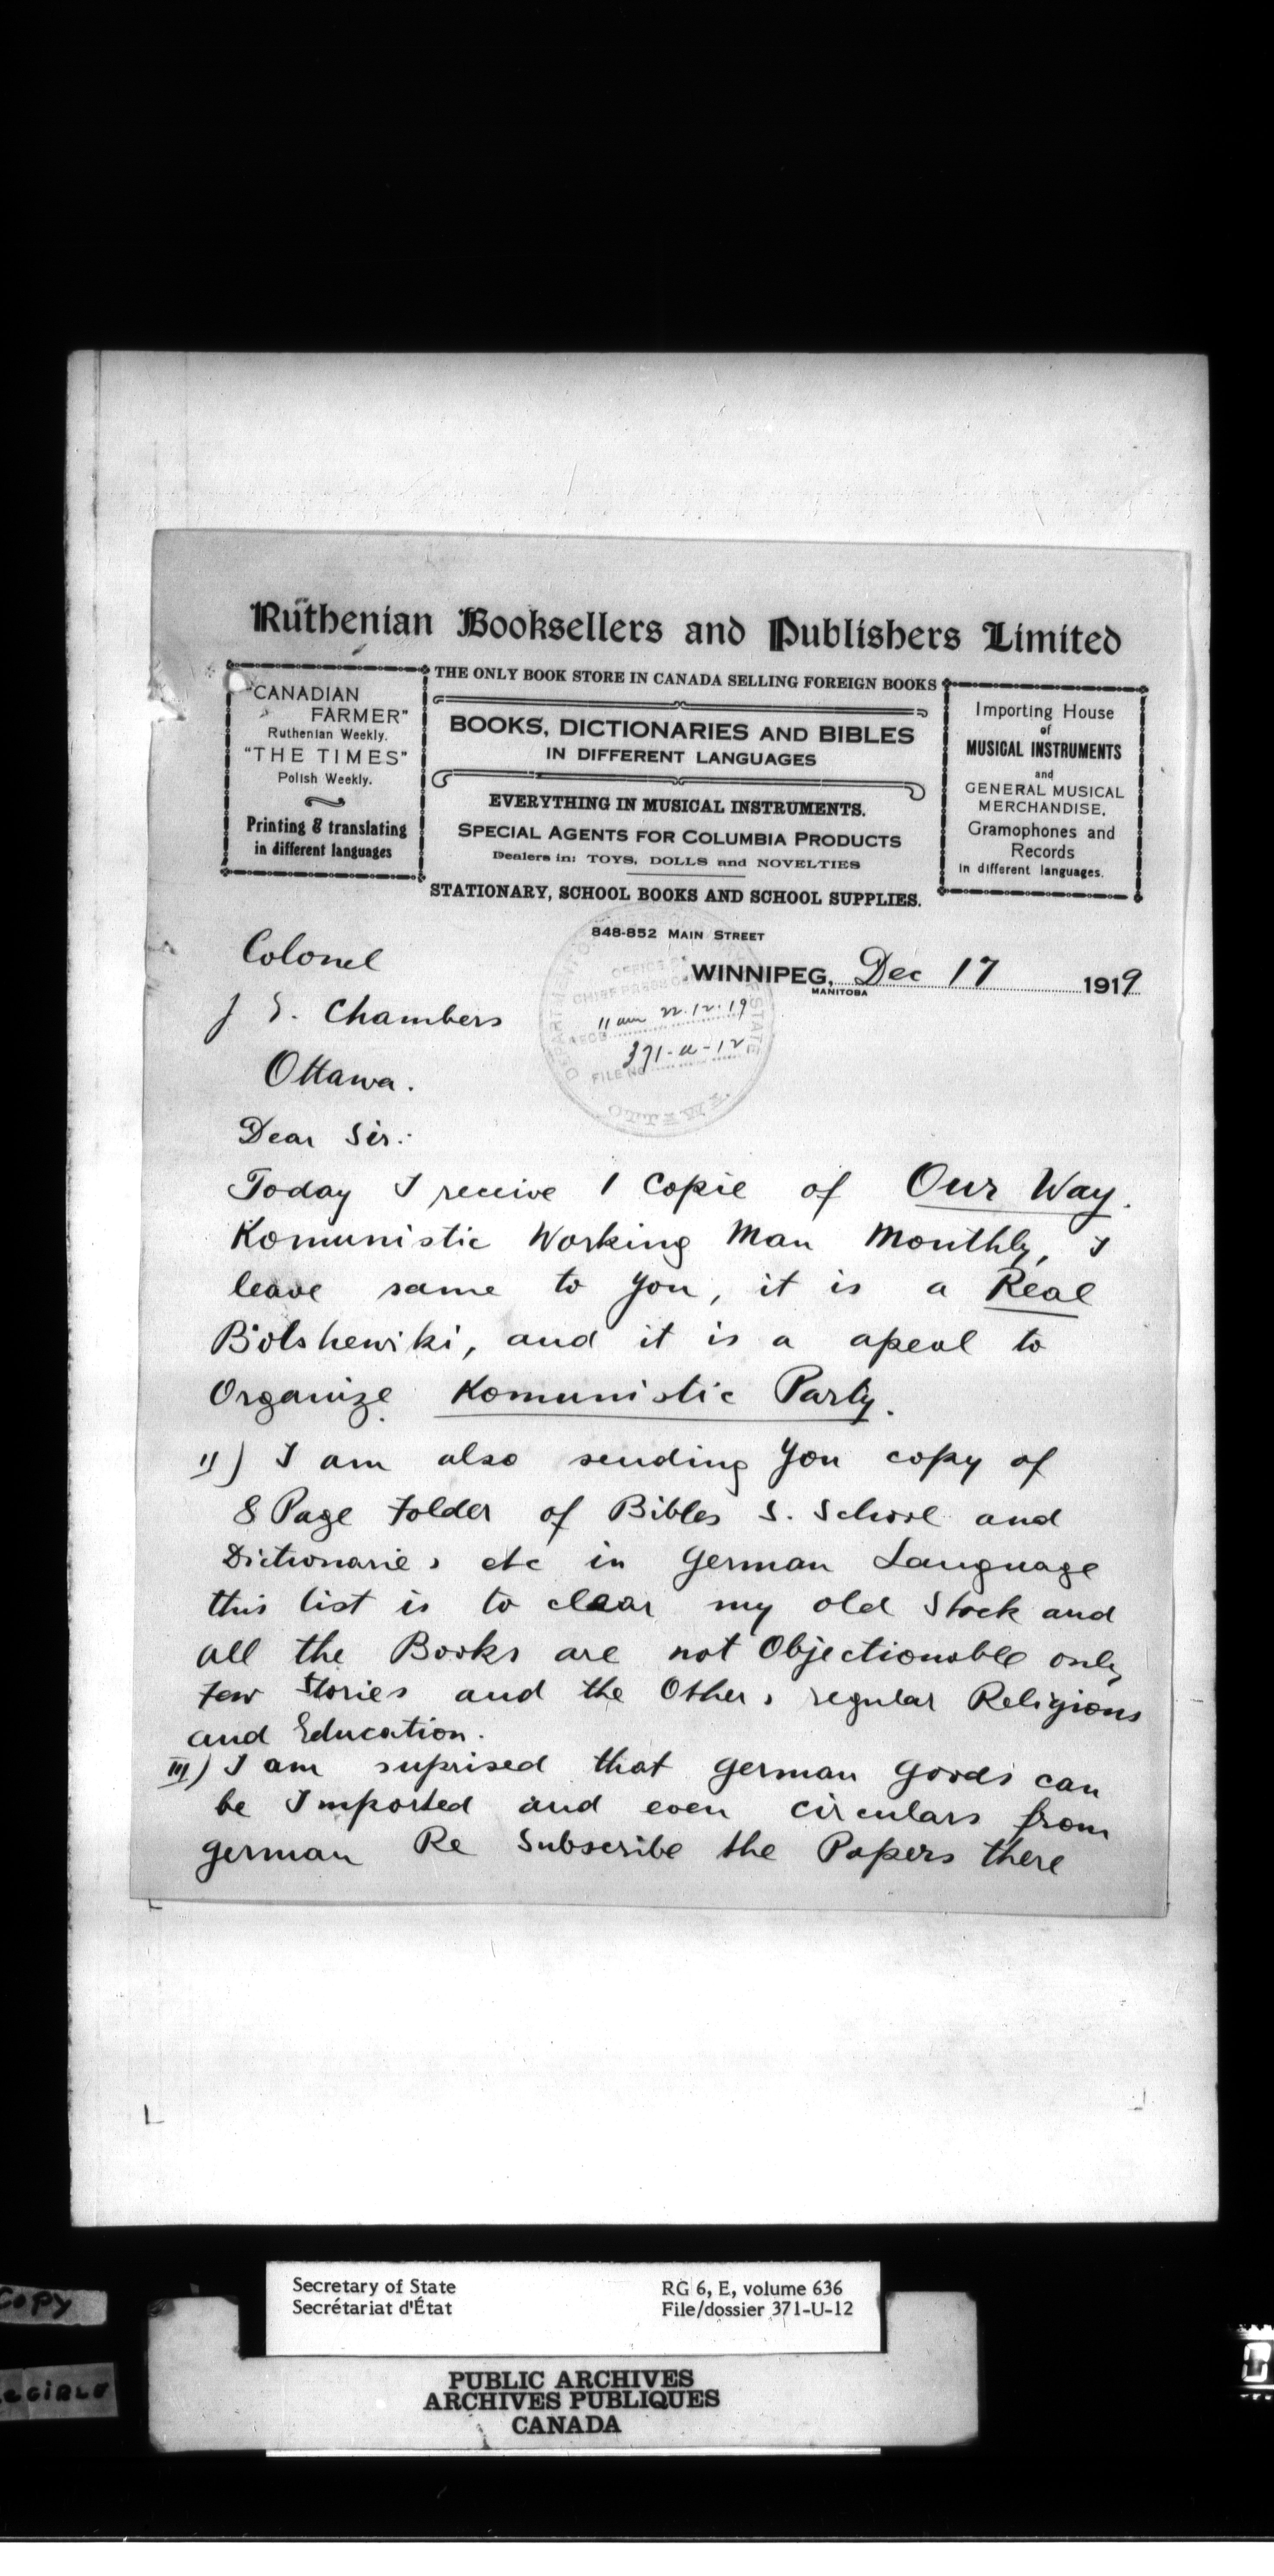 Ruthenian Booksellers and Publishers Limited
THE ONLY BOOK STORE IN CANADA SELLING FOREIGN BOOKS
"CANADIAN
FARMER"
Ruthenian Weekly.
"THE TIMES"
Polish Weekly.
Printing & translating
in different languages
BOOKS, DICTIONARIES AND BIBLES
IN DIFFERENT LANGUAGES
EVERYTHING IN MUSICAL INSTRUMENTS.
SPECIAL AGENTS FOR COLUMBIA PRODUCTS
Dealers in: TOYS, DOLLS and NOVELTIES
STATIONARY, SCHOOL BOOKS AND SCHOOL SUPPLIES.
Importing House
of
MUSICAL INSTRUMENTS
and
GENERAL MUSICAL
MERCHANDISE,
Gramophones and
Records
in different languages.
848-852 MAIN STREET
WINNIPEG, Dec 17 1919
MANITOBA
OFFICE OF
CHIEF PRESS
11 am 22.12.19
371-U-12
FILE No
DEPARTMENT OF STATE
OTTAWA
Colonel
J E. Chambers
Ottawa.
Dear Sir:
Today I receive 1 Copie of Our Way.
Komunistic Working Man Monthly, I
leave same to you, it is a Real
Bolshewiki, and it is a apeal to
Organize Komunistic Party.
II) I am also sending you copy of
8 Page Folder of Bibles S. School and
Dictionaries etc in German Language
this list is to clear my old Stock and
all the Books are not Objectionable only
few Stories and the Others regular Religious
and Education.
III) I am suprised that german goods can
be Imported and even circulars from
german Re Subscribe the Papers there
COPY
Secretary of State
Secrétariat d'État
RG 6, E, volume 636
File/dossier 371-U-12
PUBLIC ARCHIVES
ARCHIVES PUBLIQUES
CANADA